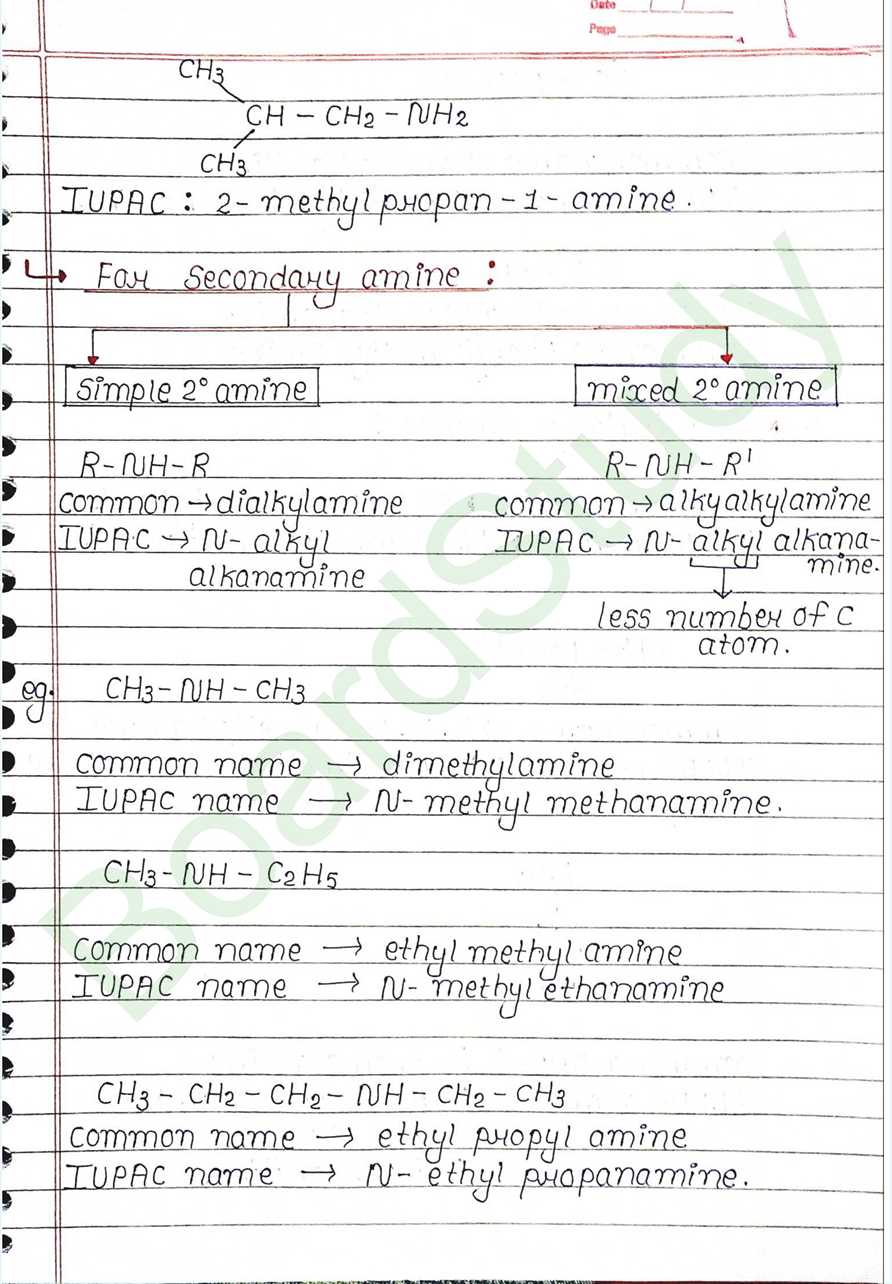 Date
Page
CH3
CH - CH2 - NH2
CH3
IUPAC : 2- methyl propan - 1 - amine.
For Secondary amine :
Simple 2° amine
mixed 2° amine
R-NH-R
R-NH-R'
common → dialkylamine
common → alkyalkylamine
IUPAC → N- alkyl
IUPAC → N- alkyl alkana-
alkanamine
mine.
less number of C
atom.
eg. CH3-NH-CH3
Common name → dimethylamine
IUPAC name → N- methyl methanamine.
CH3-NH-C2H5
Common name → ethyl methyl amine
IUPAC name → N- methyl ethanamine
CH3 - CH2 - CH2 - NH - CH2 - CH3
Common name → ethyl propyl amine
IUPAC name → N- ethyl propanamine.
BoardStudy